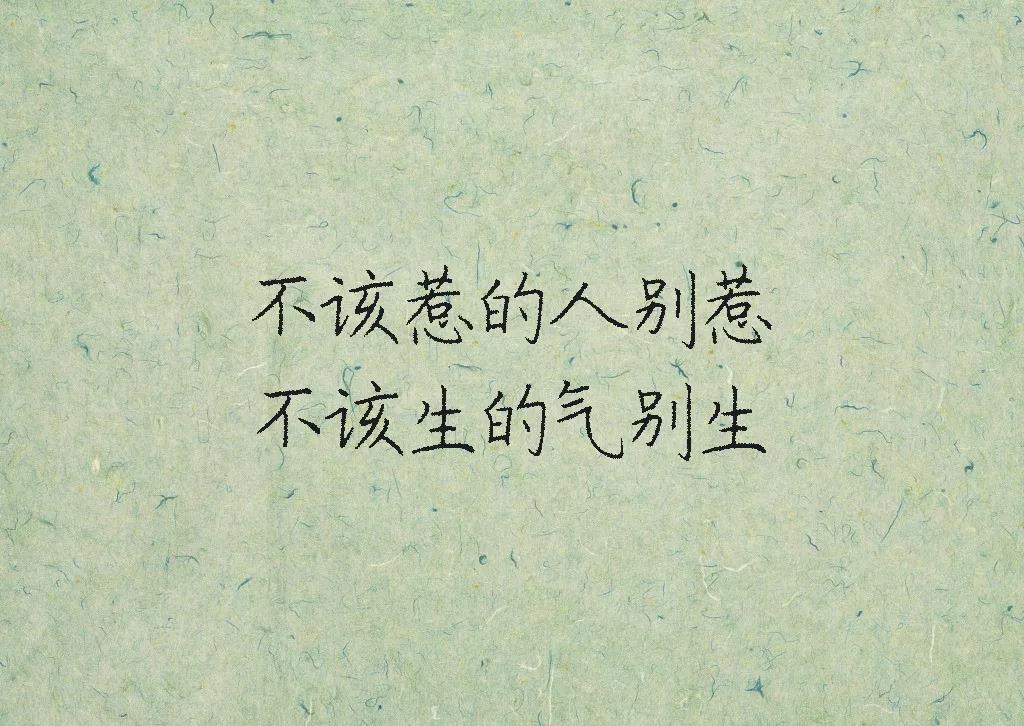 不该惹的人别惹
不该生的气别生